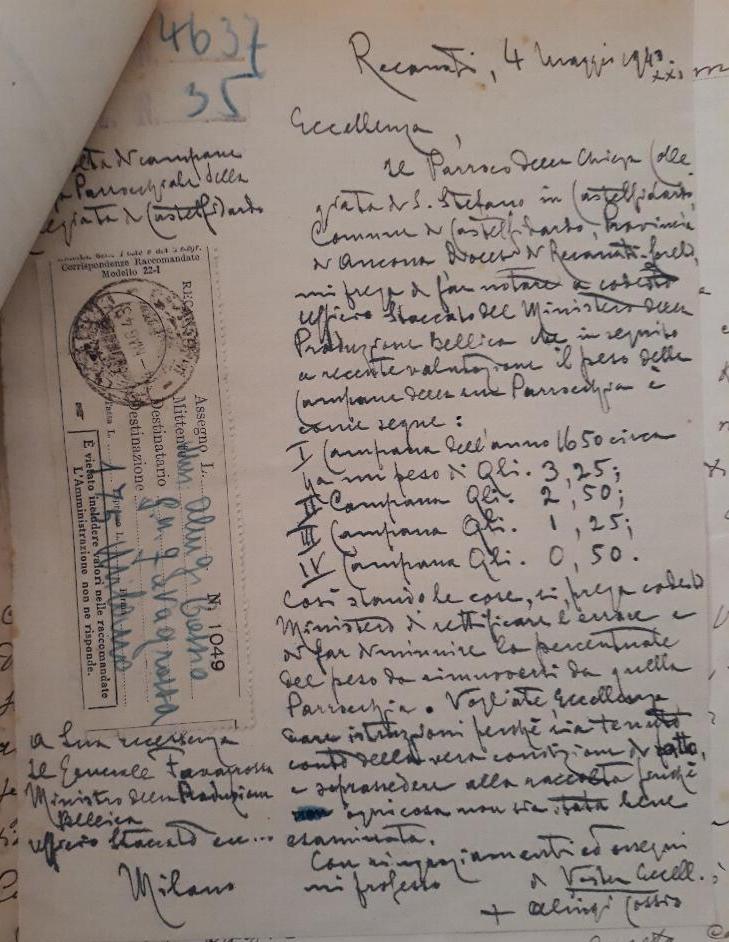 4637
35
Recanati, 4 Maggio 1943
XXI
Eccellenza,
di campane
Parrocchiale della
Collegiata di Castelfidardo
Il Parroco della Chiesa Colle
giata di S. Stefano in Castelfidardo,
Comune di Castelfidardo, Provincia
di Ancona Diocesi di Recanati-Loreto,
mi prega di far notare a codesto
Ufficio Staccato del Ministero della
Produzione Bellica che in seguito
a recente valutazione il peso delle
Campane della sua Parrocchia è
come segue:
I Campana dell'anno 1650 circa
ha un peso di Qli. 3,25;
II Campana Qli. 2,50;
III Campana Qli. 1,25;
IV Campana Qli. 0,50.
Così stando le cose, si prega codesto
Ministero di rettificare l'errore e
di far diminuire la percentuale
del peso da rimuoversi da quella
Parrocchia. Vogliate, Eccellenza
dare istruzioni perchè sia tenuto
conto della vera condizione di fatto,
e soprassedere alla raccolta finchè
ogni cosa non sia stata bene
esaminata.
Con ringraziamenti ed ossequi
mi professo
di Vostra Eccell.
+ Aluigi Cossio
Corrispondenze Raccomandate
Modello 22-I
RECANATI
N. 1049
Assegno L.
Mittente Mons. Aluigi Cossio
Destinatario S. E. Favagrossa
Destinazione Milano
Tassa L. 1,75
È vietato includere valori nelle raccomandate
L'Amministrazione non ne risponde.
A Sua eccellenza
Il Generale Favagrossa
Ministro della Produzione
Bellica
Ufficio Staccato ecc...
Milano